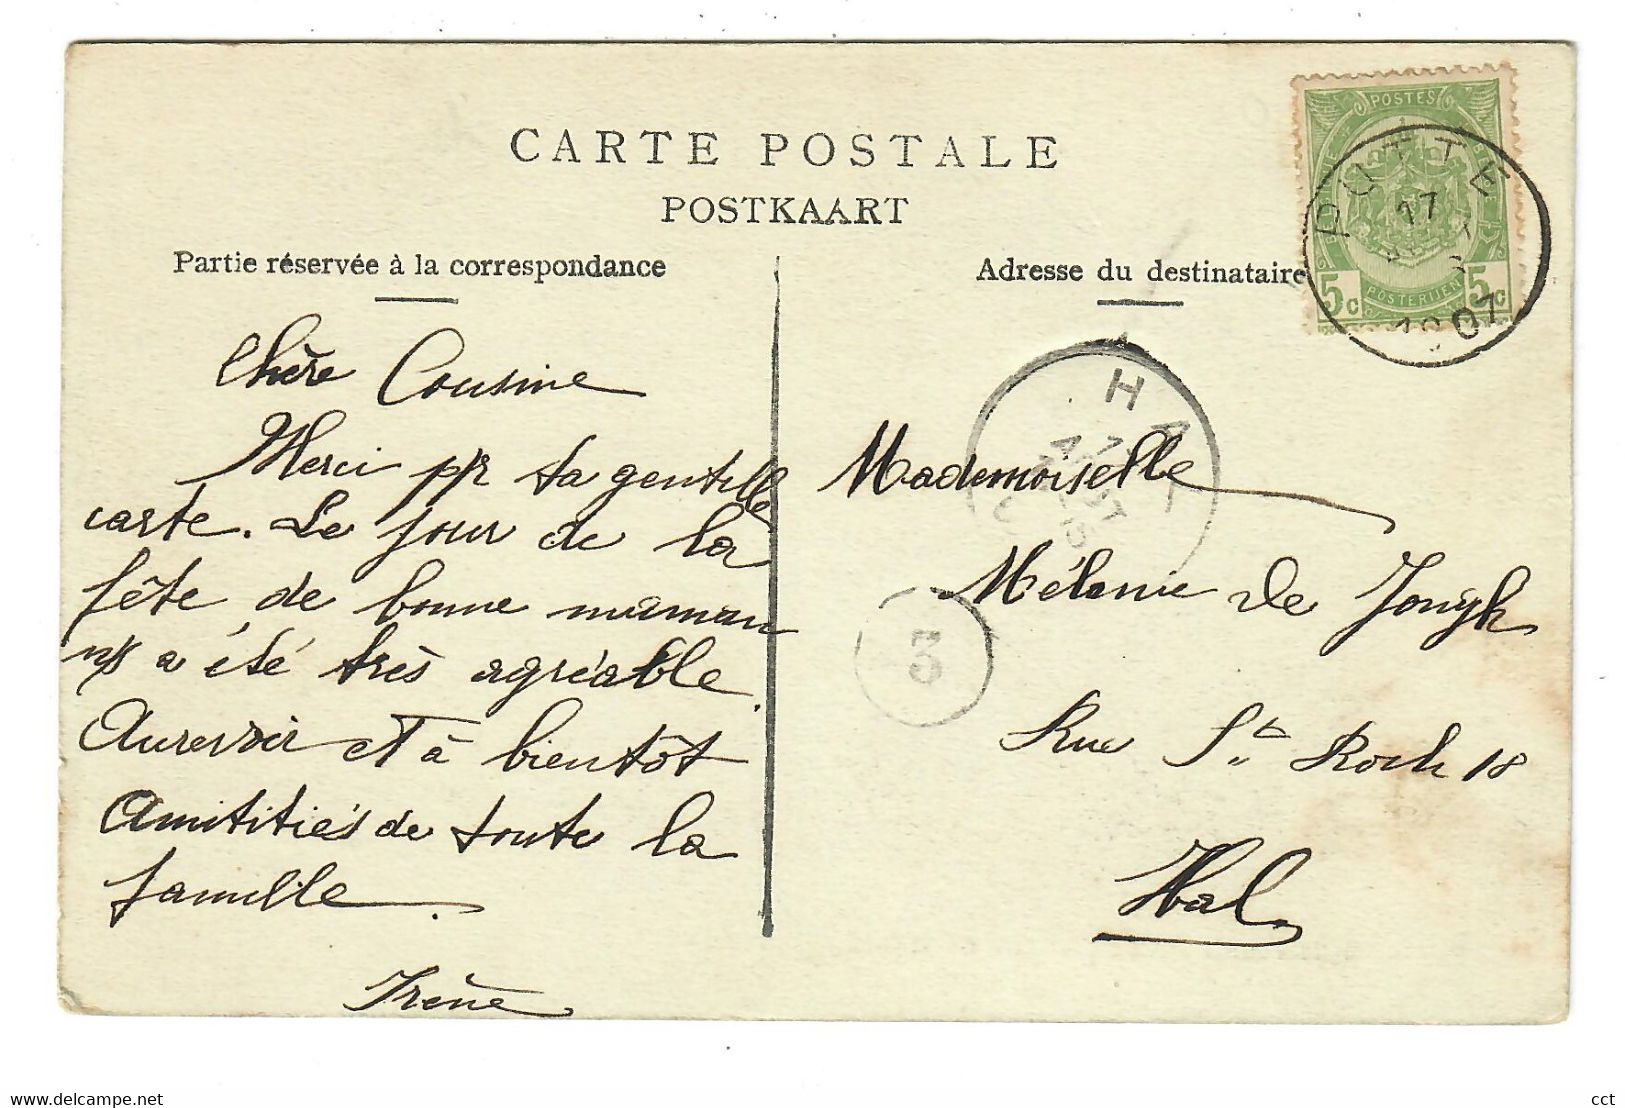 CARTE POSTALE
POSTKAART
Partie réservée à la correspondance
Adresse du destinataire
POSTES
POSTERIJEN
5c 5c
PUTTE
17
1907
HAL
3
Chère Cousine
Merci pr ta gentille
carte. Le jour de la
fête de bonne maman
ns a été très agréable.
Aurevoir et à bientôt
Amititiés de toute la
famille.
Irène
Mademoiselle
Mélanie De Jongh
Rue St Roch 18
Hal
www.delcampe.net
cct